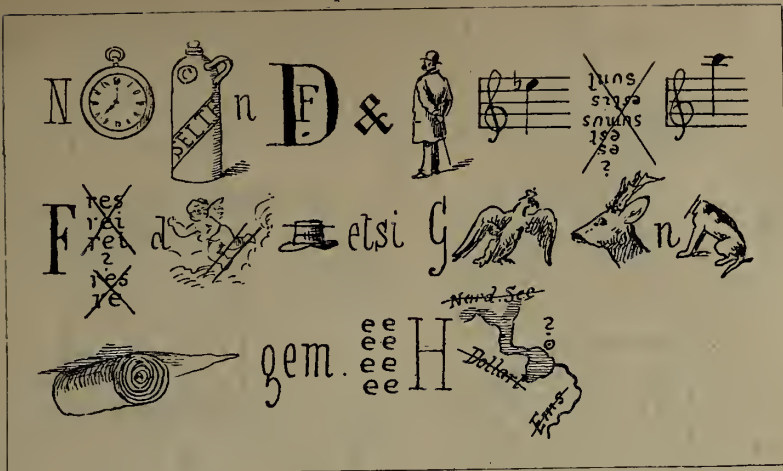 N SELT n D F. & ♭
?
es
est
sumus
estis
sunt
F
res
rei
rei
?
res
re
d etsi G n
gem.
ee
ee
ee
ee
H
Nord-See
Dollart
?
Ems